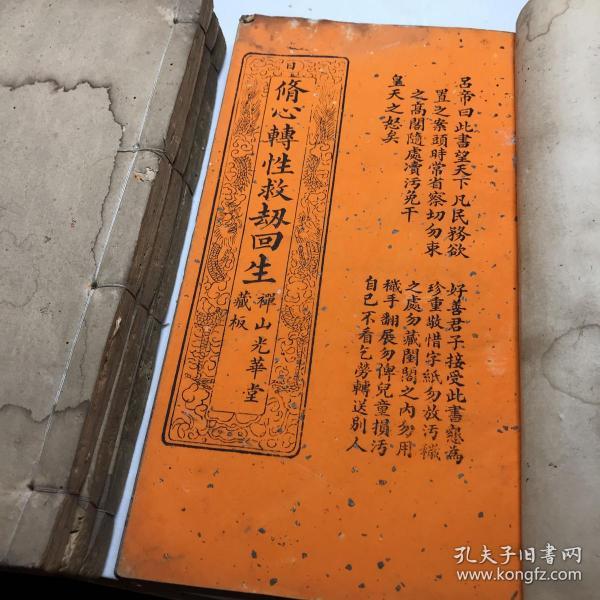 呂帝曰此書望天下凡民務欲
置之案頭時常省察切勿束
之高閣隨處瀆污免干
皇天之怒矣
好善君子接受此書懇為
珍重敬惜字紙勿放污穢
之處勿藏閨閣之內勿用
穢手翻展勿俾兒童損污
自己不看乞勞轉送別人
日
脩心轉性救刼回生
禪山光華堂
藏板
孔夫子旧書网
www.kongfz.com